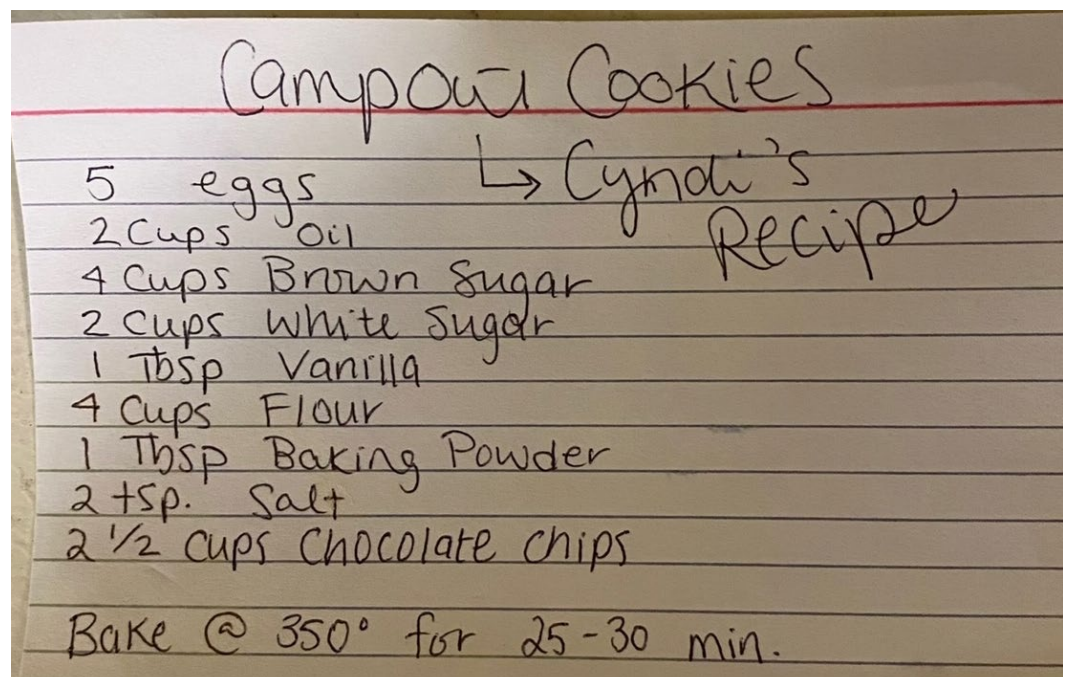 Campout Cookies
↳ Cyndi's
Recipe
5 eggs
2 Cups Oil
4 Cups Brown Sugar
2 Cups White Sugar
1 Tbsp Vanilla
4 Cups Flour
1 Tbsp Baking Powder
2 tsp. Salt
2 1/2 cups Chocolate Chips
Bake @ 350° for 25-30 min.